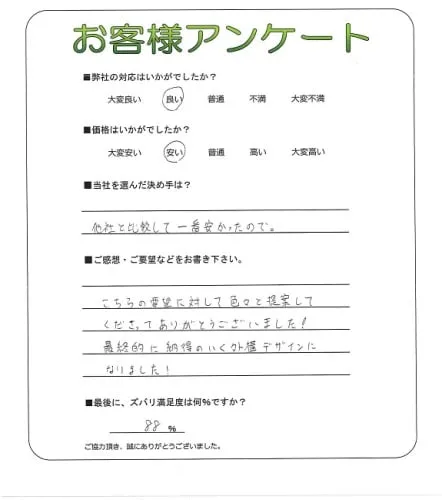 お客様アンケート
■弊社の対応はいかがでしたか？
大変良い 良い 普通 不満 大変不満
■価格はいかがでしたか？
大変安い 安い 普通 高い 大変高い
■当社を選んだ決め手は？
他社と比較して一番安かったので。
■ご感想・ご要望などをお書き下さい。
こちらの要望に対して色々と提案して
くださってありがとうございました！
最終的に納得のいく外構デザインに
なりました！
■最後に、ズバリ満足度は何%ですか？
88 %
ご協力頂き、誠にありがとうございました。